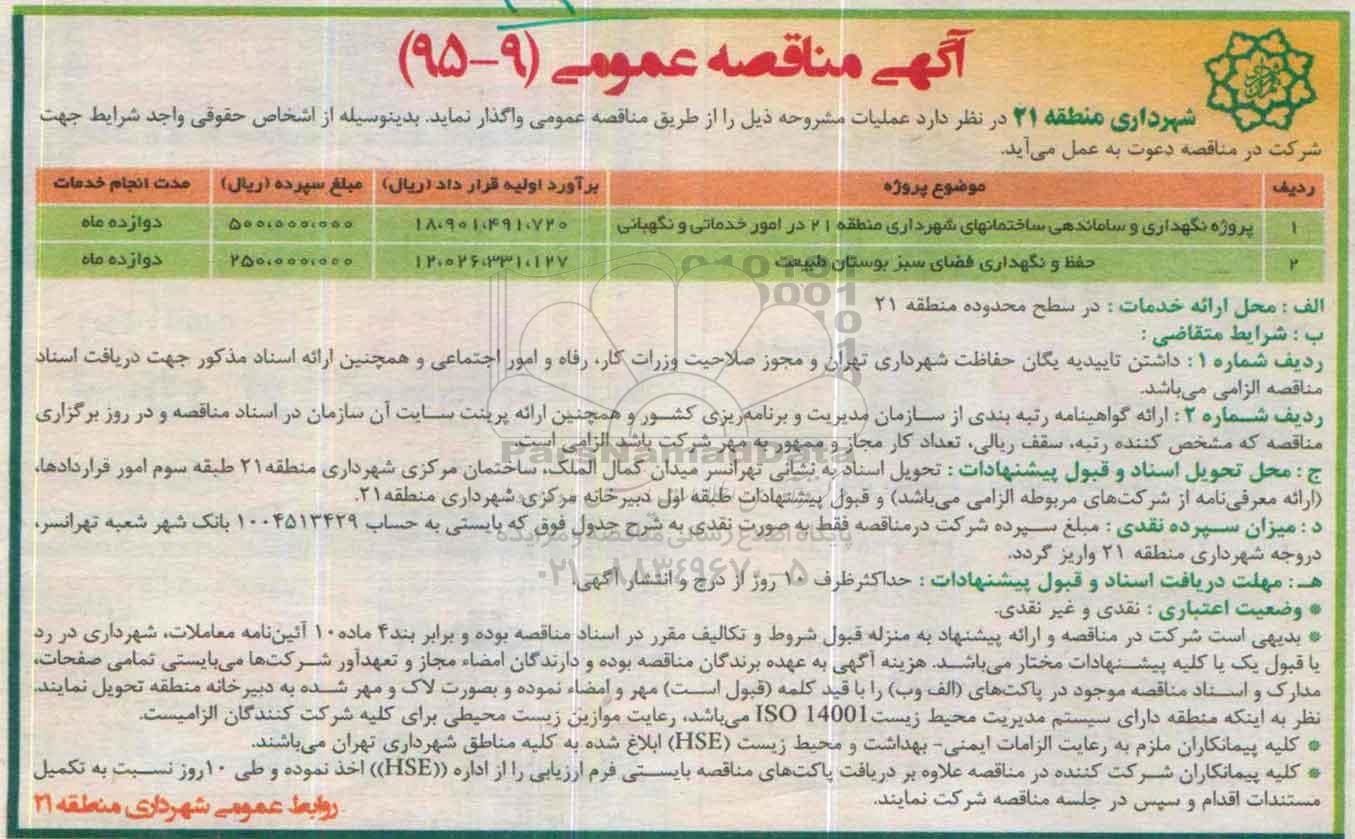 آگهی مناقصه عمومی (۹-۹۵)
شهرداری منطقه ۲۱ در نظر دارد عملیات مشروحه ذیل را از طریق مناقصه عمومی واگذار نماید. بدینوسیله از اشخاص حقوقی واجد شرایط جهت
شرکت در مناقصه دعوت به عمل می‌آید.
ردیف موضوع پروژه برآورد اولیه قرار داد (ریال) مبلغ سپرده (ریال) مدت انجام خدمات
۱ پروژه نگهداری و ساماندهی ساختمانهای شهرداری منطقه ۲۱ در امور خدماتی و نگهبانی ۱۸،۹۰۱،۴۹۱،۷۲۰ ۵۰۰،۰۰۰،۰۰۰ دوازده ماه
۲ حفظ و نگهداری فضای سبز بوستان طبیعت ۱۲،۰۲۶،۳۳۱،۱۲۷ ۲۵۰،۰۰۰،۰۰۰ دوازده ماه
الف : محل ارائه خدمات : در سطح محدوده منطقه ۲۱
ب : شرایط متقاضی :
ردیف شماره ۱ : داشتن تاییدیه یگان حفاظت شهرداری تهران و مجوز صلاحیت وزرات کار، رفاه و امور اجتماعی و همچنین ارائه اسناد مذکور جهت دریافت اسناد
مناقصه الزامی می‌باشد.
ردیف شماره ۲ : ارائه گواهینامه رتبه بندی از سازمان مدیریت و برنامه‌ریزی کشور و همچنین ارائه پرینت سایت آن سازمان در اسناد مناقصه و در روز برگزاری
مناقصه که مشخص کننده رتبه، سقف ریالی، تعداد کار مجاز و ممهور به مهر شرکت باشد الزامی است.
ج : محل تحویل اسناد و قبول پیشنهادات : تحویل اسناد به نشانی تهرانسر میدان کمال الملک، ساختمان مرکزی شهرداری منطقه۲۱ طبقه سوم امور قراردادها،
(ارائه معرفی‌نامه از شرکت‌های مربوطه الزامی می‌باشد) و قبول پیشنهادات طبقه اول دبیرخانه مرکزی شهرداری منطقه۲۱.
د : میزان سپرده نقدی : مبلغ سپرده شرکت درمناقصه فقط به صورت نقدی به شرح جدول فوق که بایستی به حساب ۱۰۰۴۵۱۳۴۲۹ بانک شهر شعبه تهرانسر،
دروجه شهرداری منطقه ۲۱ واریز گردد.
هـ : مهلت دریافت اسناد و قبول پیشنهادات : حداکثرظرف ۱۰ روز از درج و انتشار آگهی.
* وضعیت اعتباری : نقدی و غیر نقدی.
* بدیهی است شرکت در مناقصه و ارائه پیشنهاد به منزله قبول شروط و تکالیف مقرر در اسناد مناقصه بوده و برابر بند۴ ماده۱۰ آئین‌نامه معاملات، شهرداری در رد
یا قبول یک یا کلیه پیشنهادات مختار می‌باشد. هزینه آگهی به عهده برندگان مناقصه بوده و دارندگان امضاء مجاز و تعهدآور شرکت‌ها می‌بایستی تمامی صفحات،
مدارک و اسناد مناقصه موجود در پاکت‌های (الف وب) را با قید کلمه (قبول است) مهر و امضاء نموده و بصورت لاک و مهر شده به دبیرخانه منطقه تحویل نمایند.
نظر به اینکه منطقه دارای سیستم مدیریت محیط زیست ISO 14001 می‌باشد، رعایت موازین زیست محیطی برای کلیه شرکت کنندگان الزامیست.
* کلیه پیمانکاران ملزم به رعایت الزامات ایمنی- بهداشت و محیط زیست (HSE) ابلاغ شده به کلیه مناطق شهرداری تهران می‌باشند.
* کلیه پیمانکاران شرکت کننده در مناقصه علاوه بر دریافت پاکت‌های مناقصه بایستی فرم ارزیابی را از اداره ((HSE)) اخذ نموده و طی ۱۰روز نسبت به تکمیل
مستندات اقدام و سپس در جلسه مناقصه شرکت نمایند.
روابط عمومی شهرداری منطقه ۲۱
ParsNamadData
پایگاه اطلاع رسانی مناقصه و مزایده
۰۲۱-۸۸۳۴۹۶۷۰-۵